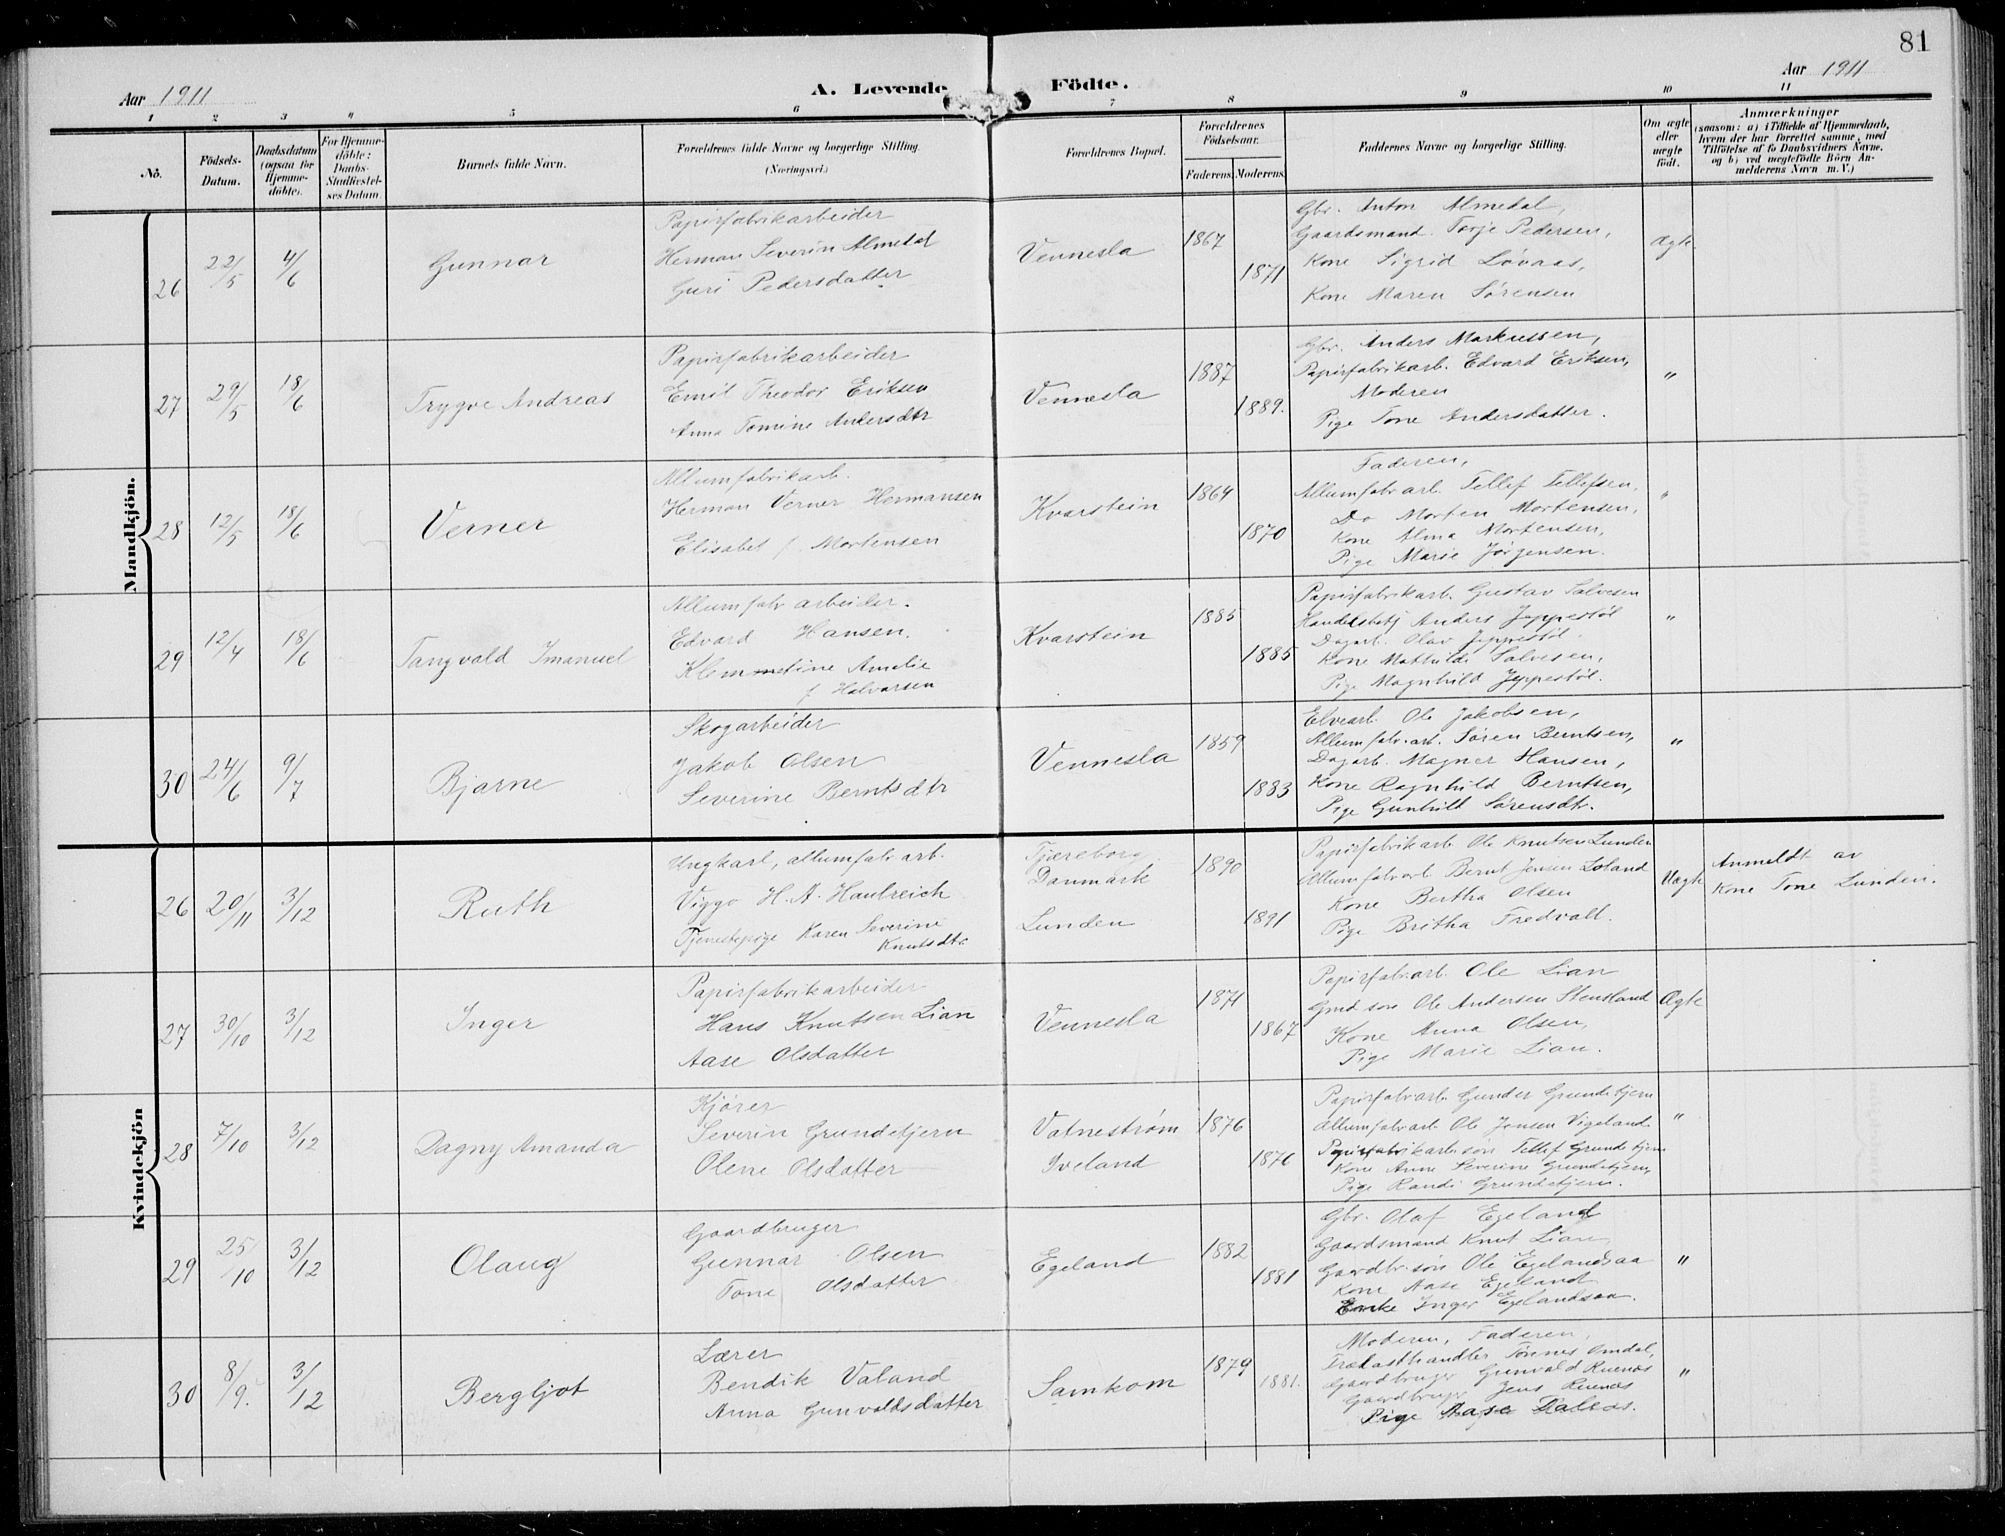 81
Aar 1911
A. Levende Födte.
Aar 1911
1 2 3 4 5 6 7 8 9 10 11
No.
Födsels-Datum.
Daabsdatum (ogsaa for Hjemme-döbte).
For Hjemme-döbte: Daabs-Stadfæstel-ses Datum.
Barnets fulde Navn.
Forældrenes fulde Navne og borgerlige Stilling. (Næringsvei.)
Forældrenes Bopæl.
Forældrenes Födselsaar.
Faderens. Moderens.
Faddernes Navne og borgerlige Stilling.
Om ægte eller uægte født.
Anmærkninger
(saasom: a) i Tilfælde af Hjemmedaab, hvem der har forrettet samme, med Tilføielse af to Daabsvidners Navne, og b) ved uægtefödte Börn An-melderens Navn m. V.)
Mandkjön.
26 22/5 4/6 Gunnar
Papirfabrikarbeider
Herman Severin Almedal
Guri Pedersdatter
Vennesla 1867 1871
Gbr. Anton Almedal,
Gaardsmand Torje Pedersen,
Kone Sigrid Løvaas,
Kone Maren Sørensen
Ægte
27 29/5 18/6 Trygve Andreas
Papirfabrikarbeider
Emil Theodor Eriksen
Anna Tomine Andersdtr
Vennesla 1887 1889.
Gbr. Anders Markussen,
Papirfabrikarb. Edvard Eriksen,
Moderen
Pige Tone Andersdatter.
"
28 12/5 18/6 Verner
Allumfabrikarb.
Herman Verner Hermansen
Elisabet f. Mortensen
Kvarstein 1864 1870
Faderen,
Allumfabr arb. Tellef Tellefsen,
Do Morten Mortensen,
Kone Alma Mortensen,
Pige Marie Jørgensen.
"
29 12/4 18/6 Tangvald Imanuel
Allumfabr arbeider.
Edvard Hansen.
Klemmetine Amelie
f Halvorsen
Kvarstein 1885 1885
Papirfabrikarb. Gustav Salvesen
Handelsbetj Anders Jeppestøl
Dagarb. Olav Jeppestøl
Kone Mathilde Salvesen,
Pige Magnhild Jeppestøl.
"
30 24/6 9/7 Bjarne
Skogarbeider
Jakob Olsen
Severine Berntsdtr
Vennesla 1859 1883
Elvearb. Ole Jakobsen,
Allumfabr.arb. Søren Berntsen,
Dagarb. Magner Hansen,
Kone Ragnhild Berntsen,
Pige Gunhild Sørensdtr.
"
Kvindekjön
26 20/11 3/12 Ruth
Ungkarl, allumfabr arb.
Viggo H. A. Hautreich
Tjenestepige Karen Severine
Knutsdtr
Tjæreborg
Danmark
Lunden
1890 1891
Papirfabrikarb Ole Knutsen Lunden
Allumfabrarb Bernt Jensen Loland
Kone Bertha Olsen
Pige Britha Fredvall.
Uægte
Anmeldt av
Kone Tone Lunden.
27 30/10 3/12 Inger
Papirfabrikarbeider
Hans Knutsen Lian
Aase Olsdatter
Vennesla 1871 1867
Papirfabrarb. Ole Lian
Grdsøn Ole Andersen Stensland
Kone Anna Olsen,
Pige Marie Lian.
Ægte
28 7/10 3/12 Dagny Amanda
Kjører
Severin Grundetjern
Olene Olsdatter
Vatnestrøm
Iveland
1876 1876
Papirfabrarb Gunder Grundetjern
Allumfabrarb Ole Jensen Vigeland
Papirfabrikarbsøn Tellef Grundetjern
Kone Anne Severine Grundetjern,
Pige Randi Grundetjern.
"
29 25/10 3/12 Olaug
Gaardbruger
Gunnar Olsen
Tone Olsdatter
Egeland 1882 1881
Gbr. Olaf Egeland
Gaardsmand Knut Lian,
Gaardbr.søn Ole Egelandsaa
Kone Aase Egeland
Enke Inger Egelandsaa.
"
30 8/9. 3/12 Bergljot
Lærer
Bendik Valand
Anna Gunvaldsdatter
Samkom 1879 1881.
Moderen, Faderen,
Trælasthandler Tønnes Omdal,
Gaardbruger Gunvald Ruenæs
Gaardbruger Jens Ruenæs
Pige Aase
"